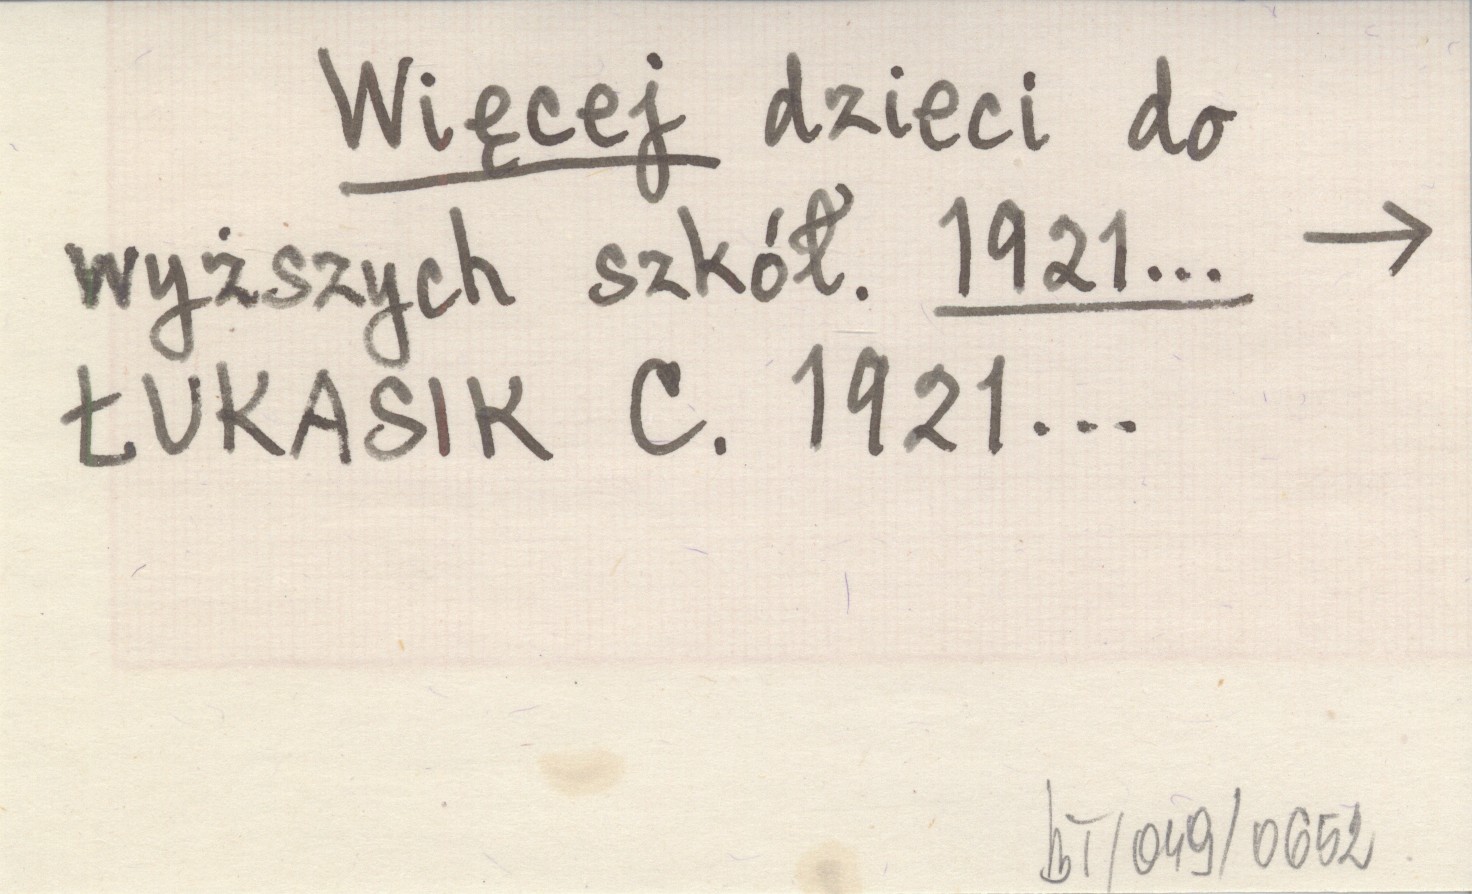 Więcej dzieci do
wyższych szkół. 1921... →
ŁUKASIK C. 1921...
bT/049/0652